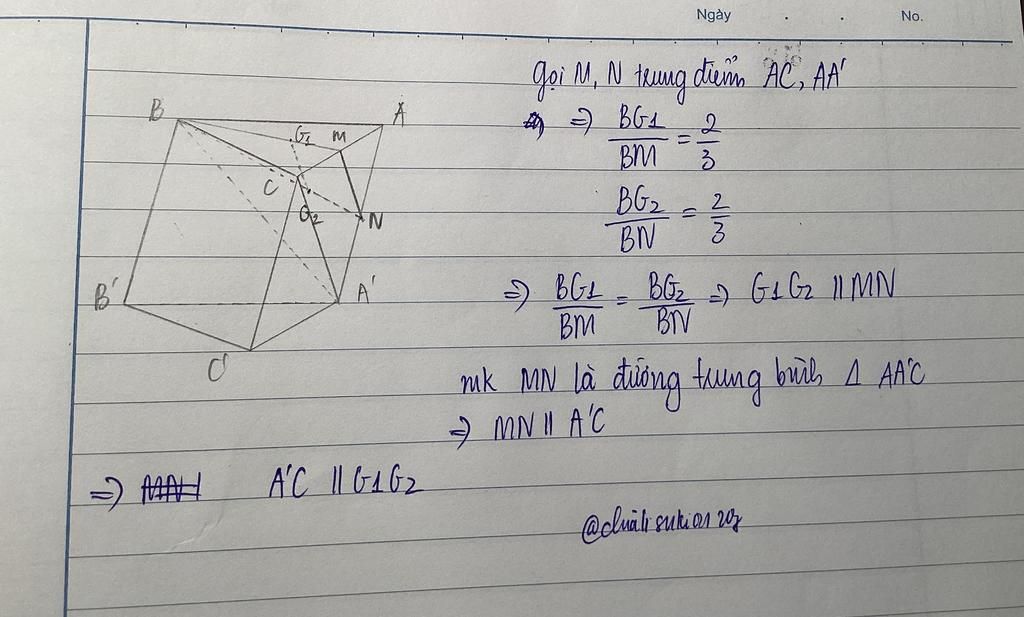 Ngày . . No.
gọi M, N trung điểm AC, AA'
=> BG1/BM = 2/3
BG2/BN = 2/3
=> BG1/BM = BG2/BN => G1G2 // MN
mk MN là đường trung bình Δ AA'C
=> MN // A'C
=> A'C // G1G2
B
A
G1
M
C
G2
N
B'
A'
C'